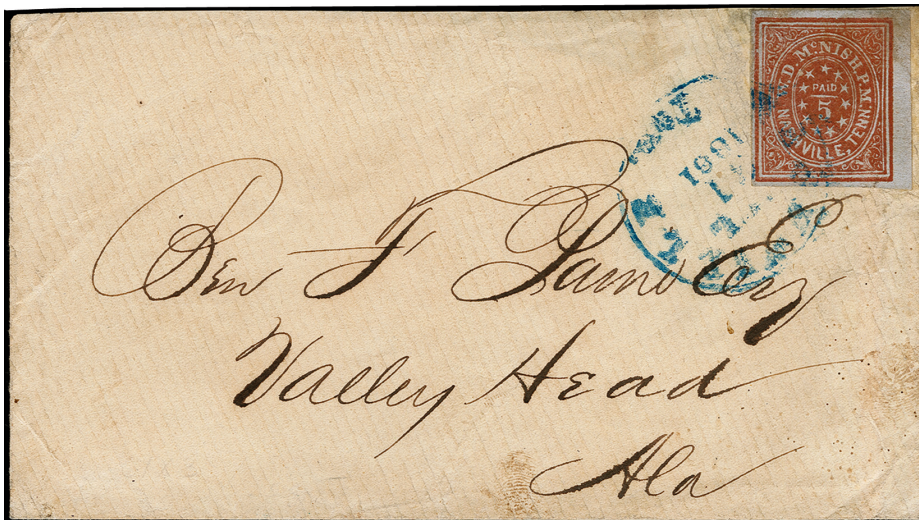 W.D. McNISH P.M.
PAID
5
NASHVILLE, TENN.
1861
Ben F Esq
Valley Head
Ala